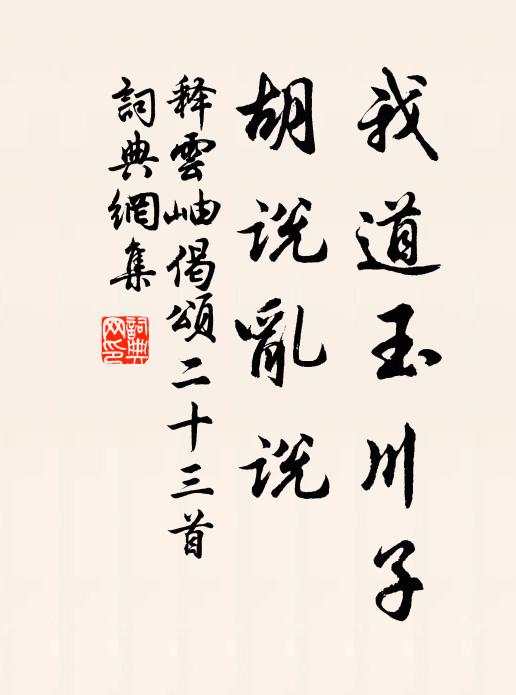 我道玉川子
胡说亂说
释雲岫偈頌二十三首
詞典網集
詞典网印